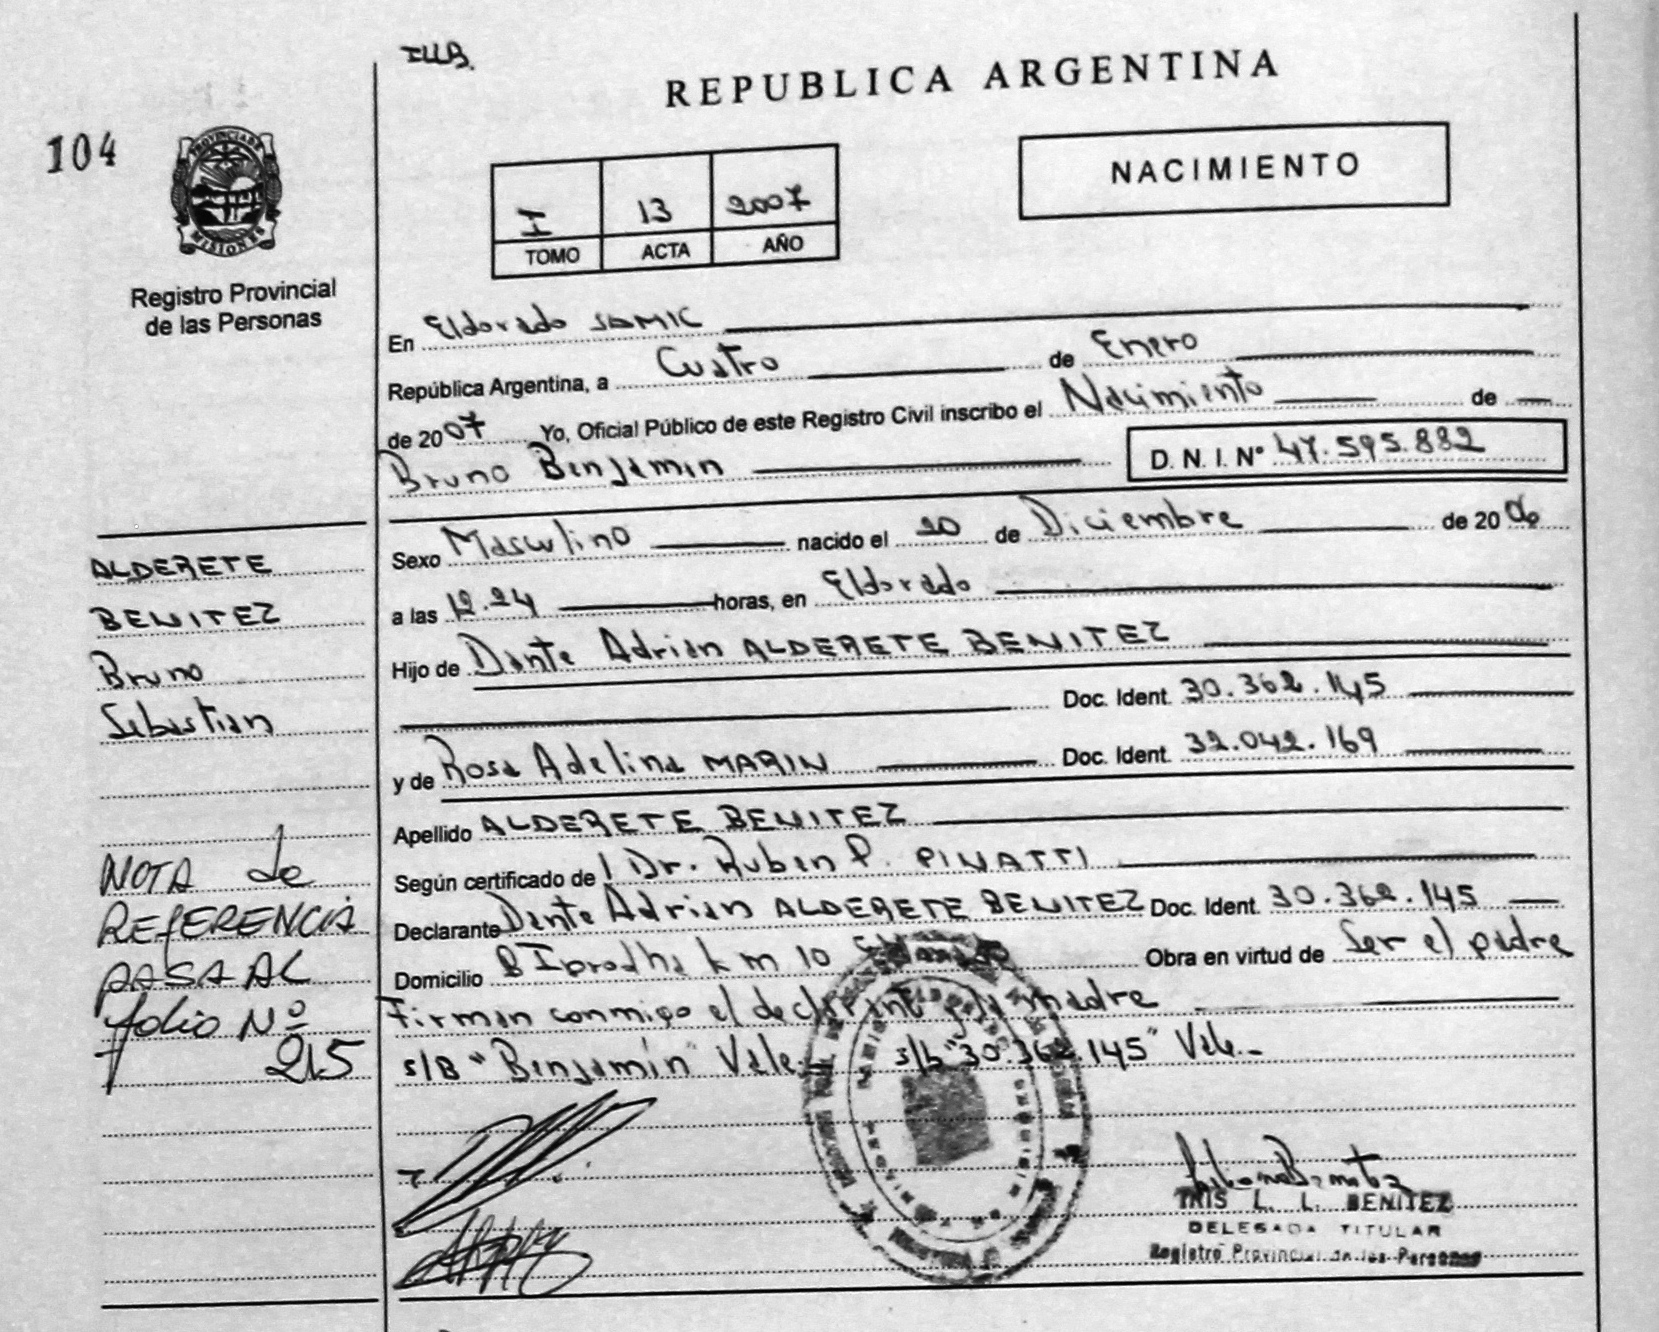 ILLB.
REPUBLICA ARGENTINA
104
PROVINCIA DE
MISIONES
Registro Provincial
de las Personas
I 13 2007
TOMO ACTA AÑO
NACIMIENTO
En Eldorado SAMIC
República Argentina, a Cuatro de Enero
de 2007 Yo, Oficial Público de este Registro Civil inscribo el Nacimiento de
Bruno Benjamin D. N. I. N° 47.595.882
Sexo Masculino nacido el 20 de Diciembre de 2006
a las 12.24 horas, en Eldorado
Hijo de Dante Adrian ALDERETE BENITEZ
Doc. Ident. 30.362.145
y de Rosa Adelina MARIN Doc. Ident. 32.042.169
Apellido ALDERETE BENITEZ
Según certificado de l Dr. Ruben P. PINATTI
Declarante Dante Adrian ALDERETE BENITEZ Doc. Ident. 30.362.145
Domicilio B Iprodha km 10 Eldorado Obra en virtud de Ser el padre
Firman conmigo el declarante y la madre
s/B "Benjamín" Vale. s/b "30.362.145" Vale.
ALDERETE
BENITEZ
Bruno
Sebastian
NOTA de
REFERENCIA
PASA AL
folio Nº
215
L. L. BENITEZ
DELEGADA TITULAR
Registro Provincial de las Personas